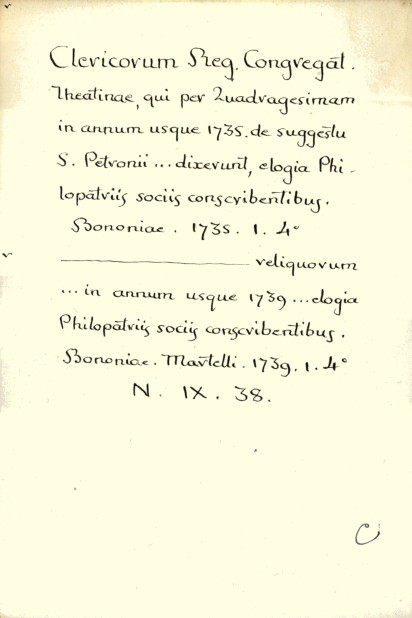 Clericorum Reg. Congregat.
Theatinae, qui per Quadragesimam
in annum usque 1735. de suggestu
S. Petronii ... dixerunt, elogia Phi-
lopatriis sociis conscribentibus.
Bononiae. 1735. 1. 4°
———— reliquorum
... in annum usque 1739 ... elogia
Philopatriis sociis conscribentibus.
Bononiae. Martelli. 1739. 1. 4°
N. IX. 38.
C